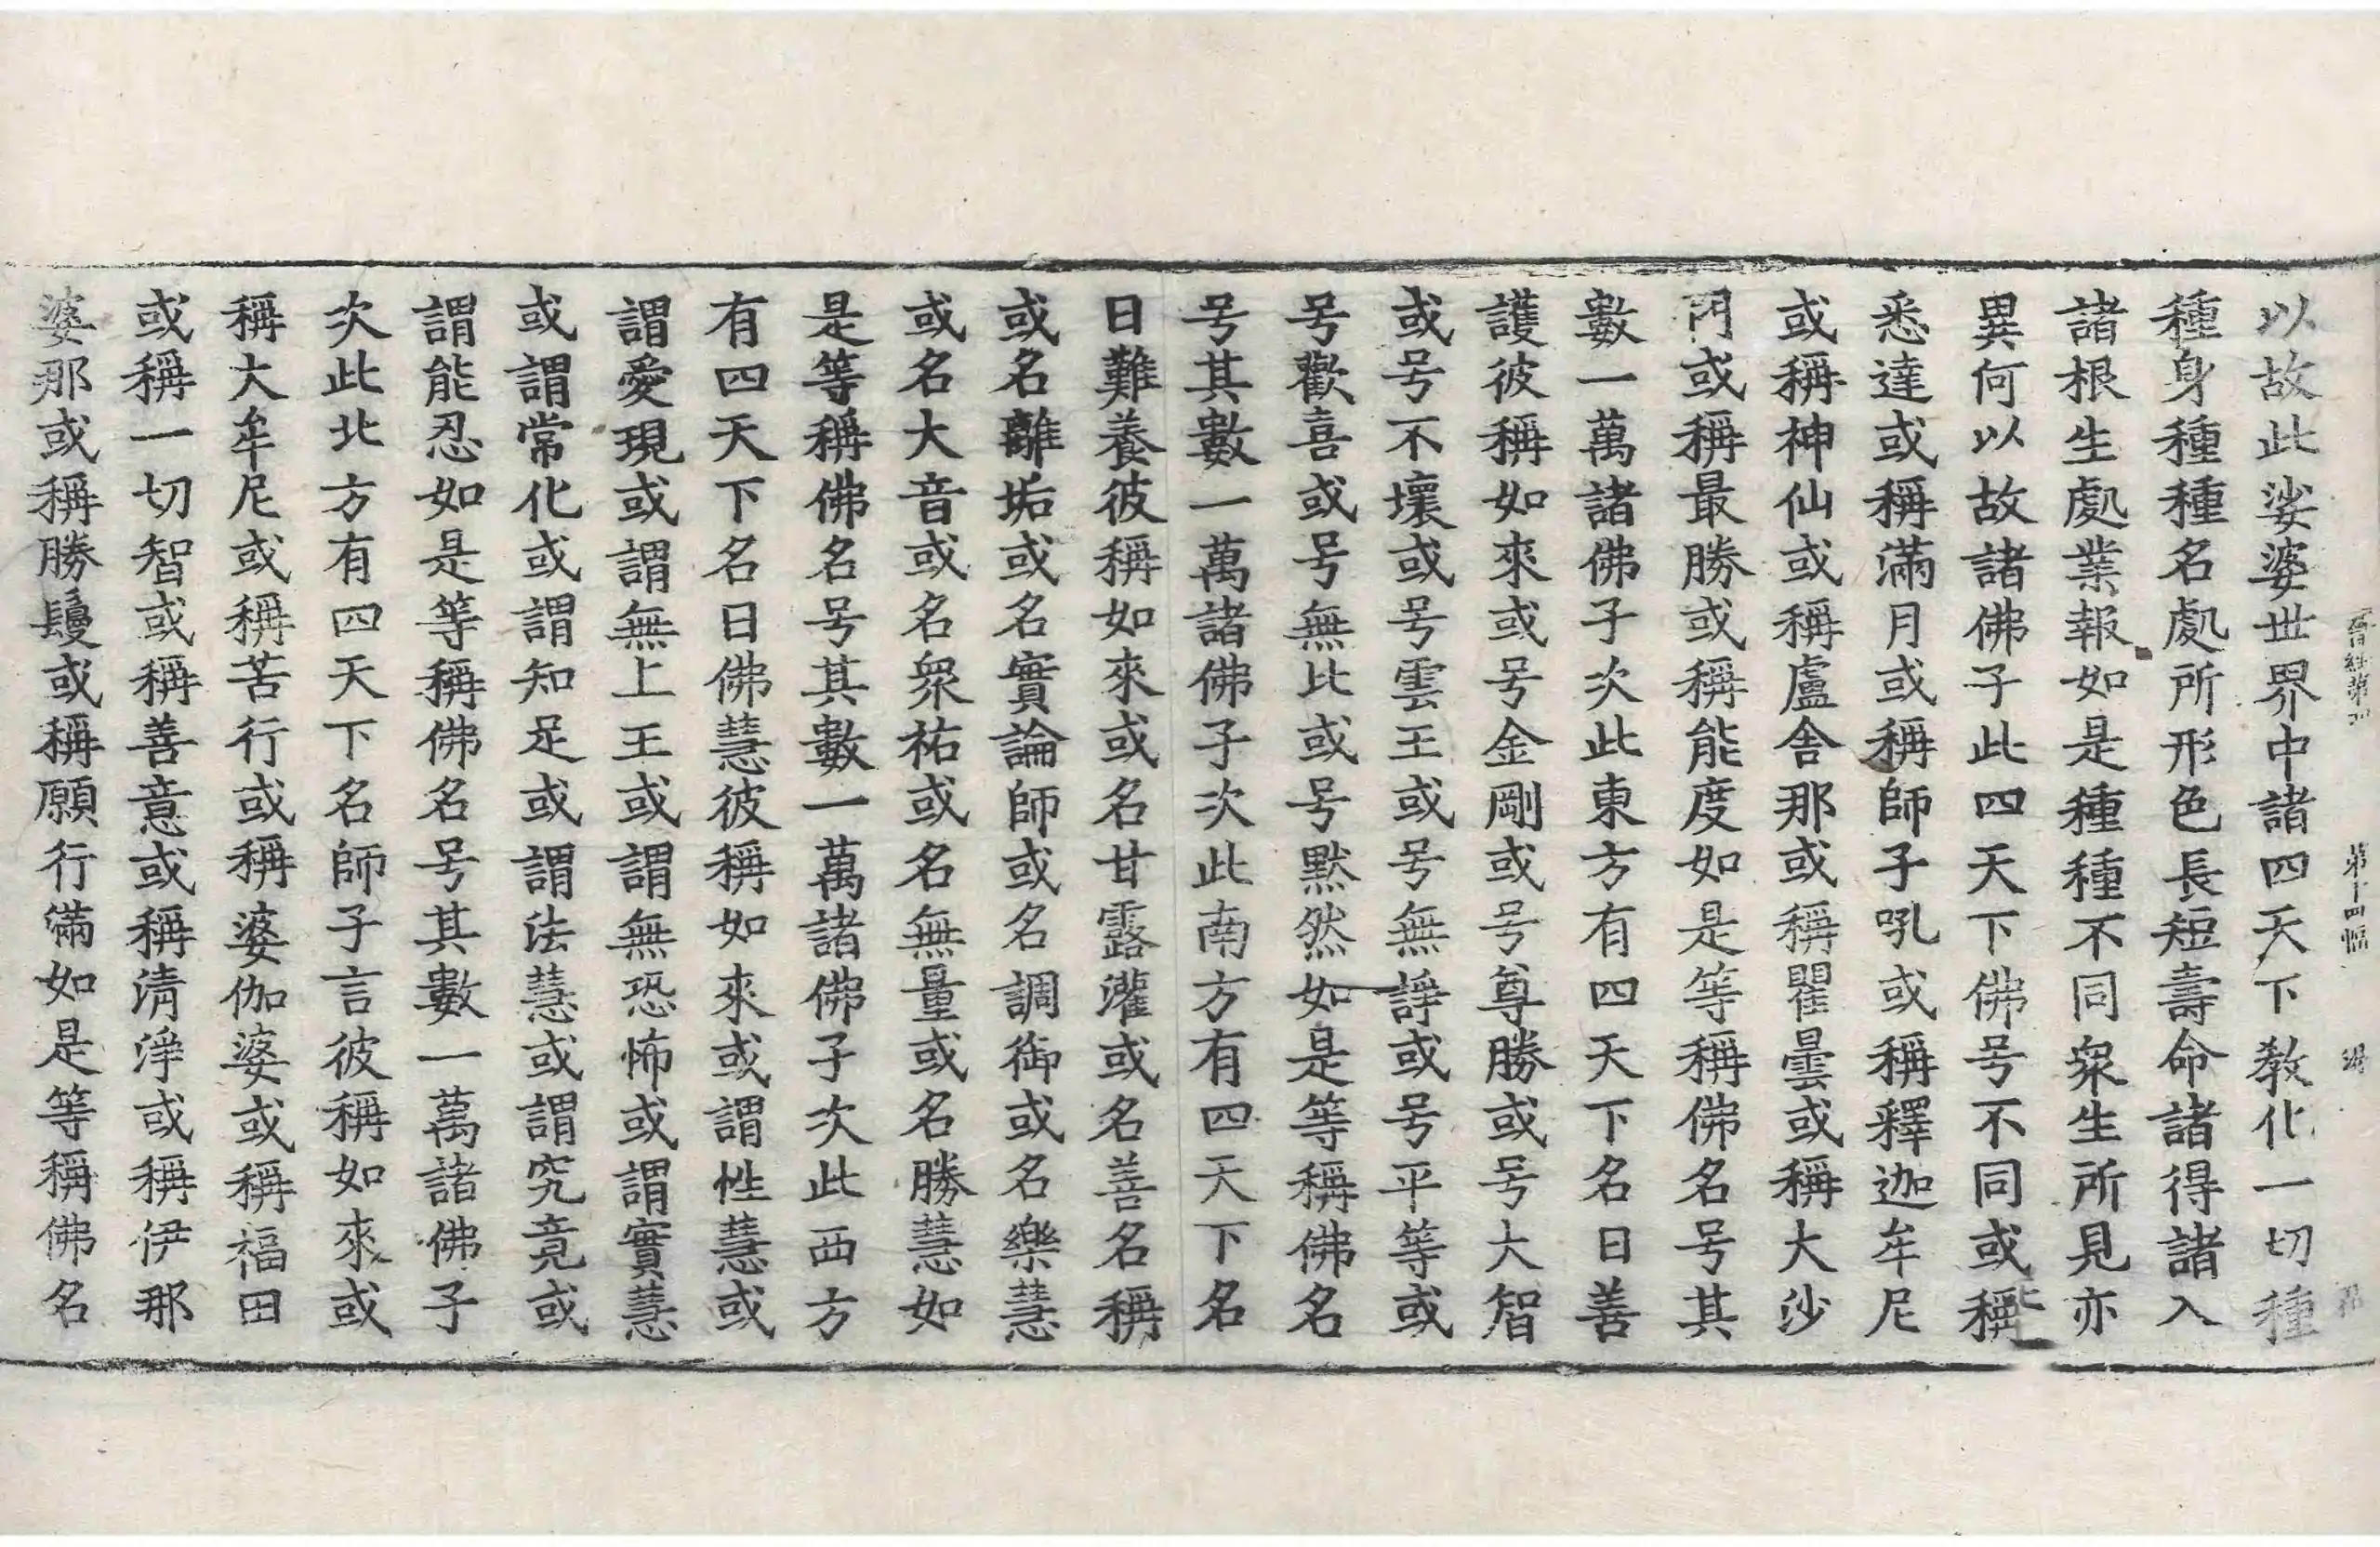 以故此娑婆世界中諸四天下教化一切種
種身種種名處所形色長短壽命諸得諸入
諸根生處業報如是種種不同衆生所見亦
異何以故諸佛子此四天下佛号不同或稱
悉達或稱滿月或稱師子吼或稱釋迦牟尼
或稱神仙或稱盧舍那或稱瞿曇或稱大沙
門或稱最勝或稱能度如是等稱佛名号其
數一萬諸佛子次此東方有四天下名曰善
護彼稱如來或号金剛或号尊勝或号大智
或号不壞或号雲王或号無諍或号平等或
号歡喜或号無比或号默然如是等稱佛名
号其數一萬諸佛子次此南方有四天下名
曰難養彼稱如來或名甘露灌或名善名稱
或名離垢或名實論師或名調御或名樂慧
或名大音或名衆祐或名無量或名勝慧如
是等稱佛名号其數一萬諸佛子次此西方
有四天下名曰佛慧彼稱如來或謂性慧或
謂愛現或謂無上王或謂無恐怖或謂實慧
或謂常化或謂知足或謂法慧或謂究竟或
謂能忍如是等稱佛名号其數一萬諸佛子
次此北方有四天下名師子言彼稱如來或
稱大牟尼或稱苦行或稱婆伽婆或稱福田
或稱一切智或稱善意或稱清淨或稱伊那
婆那或稱勝鬘或稱願行滿如是等稱佛名
第十四幅